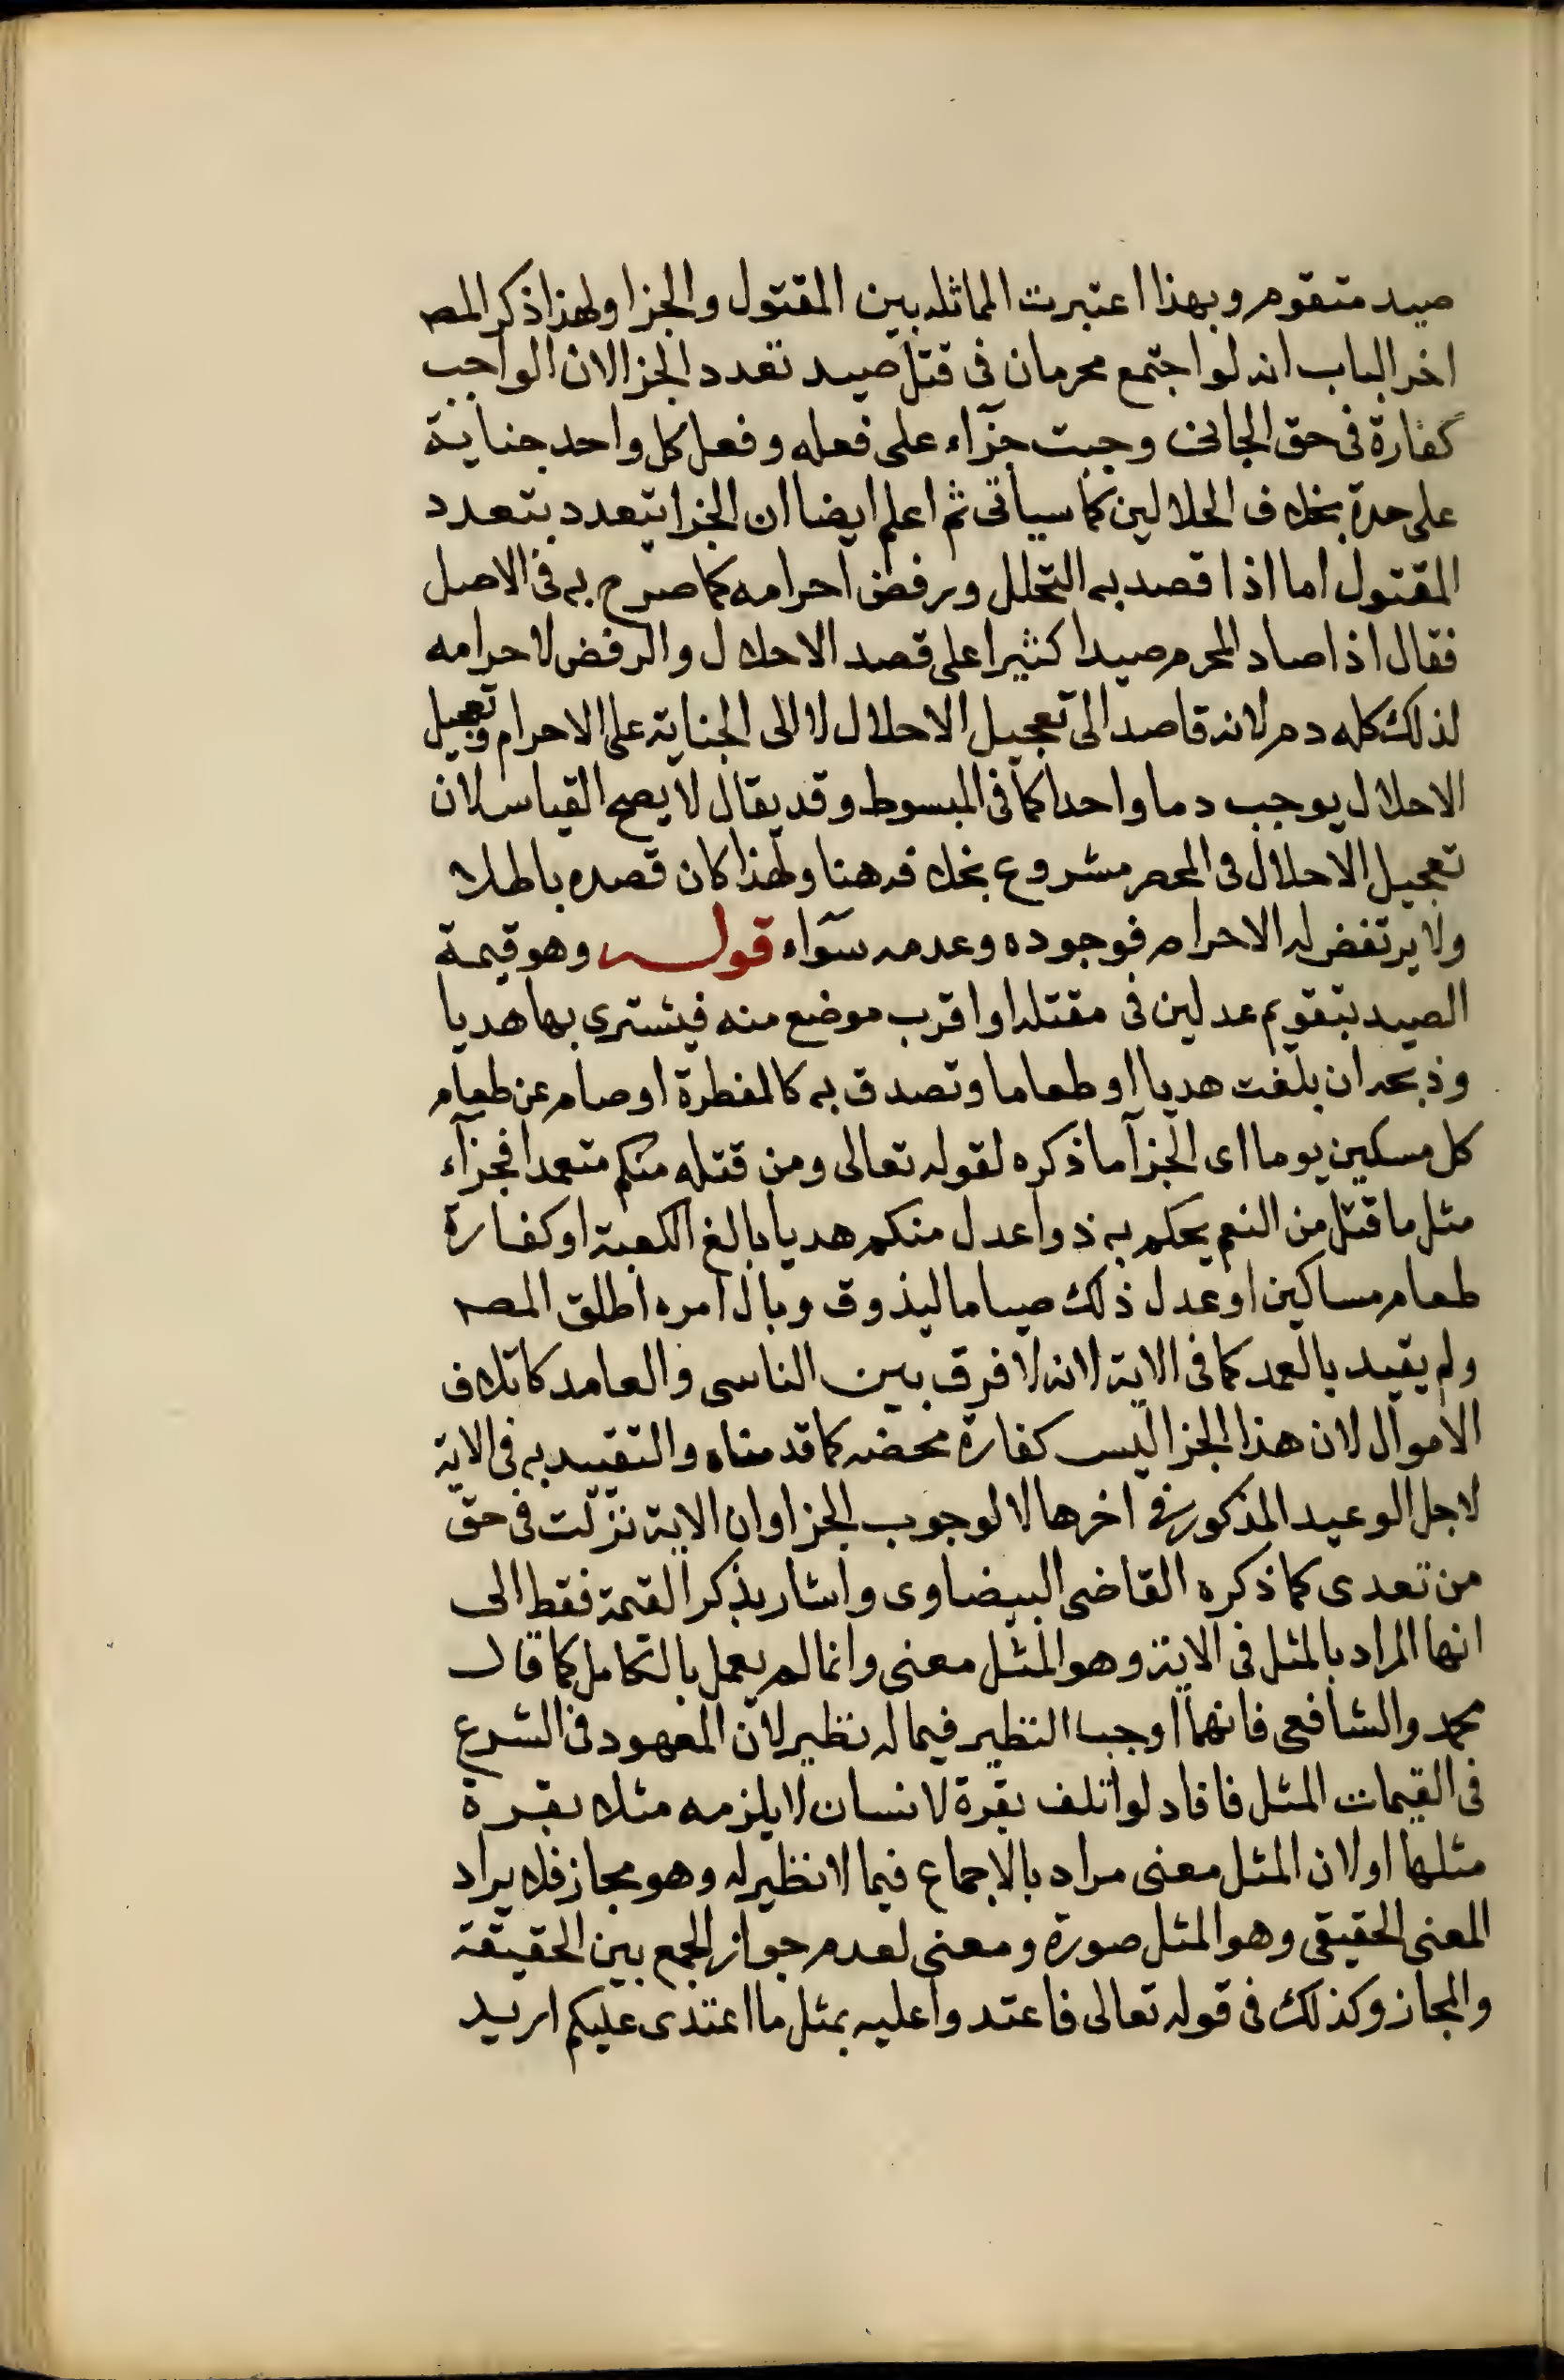 صيد متقوم وبهذا اعتبرت المماثله بين المقتول والجزا ولهذا ذكر المص
اخر الباب انه لو اجتمع محرمان في قتل صيد تعدد الجزا لان الواجب
كفارة في حق الجاني وجبت جزآء على فعله وفعل كل واحد جناية
على حدة بخلاف الحلالين كما سياتى ثم اعلم ايضا ان الجزا يتعدد بتعدد
المقتول اما اذا قصد به التحلل ورفض احرامه كما صرح به في الاصل
فقال اذا صاد المحرم صيدا كثيرا على قصد الاحلال والرفض لاحرامه
لذلك كله دم لانه قاصد الى تعجيل الاحلال لا الى الجناية على الاحرام وتعجيل
الاحلال يوجب دما واحدا كما في المبسوط وقد يقال لا يصح القياس لان
تعجيل الاحلال في المحصر مشروع بخلافه هنا ولهذا كان قصده باطلا
ولا يرتفض له الاحرام فوجوده وعدمه سوآء قوله وهو قيمة
الصيد بتقويم عدلين في مقتله او اقرب موضع منه فيشتري بها هديا
وذبحه ان بلغت هديا او طعاما وتصدق به كالفطرة او صام عن طعام
كل مسكين يوما اى الجزآ ما ذكره لقوله تعالى ومن قتله منكم متعمدا فجزآء
مثل ما قتل من النعم يحكم به ذوا عدل منكم هديا بالغ الكعبة او كفارة
طعام مساكين او عدل ذلك صياما ليذوق وبال امره اطلق المص
ولم يقيد بالعمد كما في الاية لانه لا فرق بين الناسى والعامد كاتلاف
الاموال لان هذا الجزا ليس كفارة محضه كما قدمناه والتقييد به في الاية
لاجل الوعيد المذكور في اخرها لا لوجوب الجزا وان الاية نزلت في حق
من تعدى كما ذكره القاضى البيضاوى واشار بذكر القيمة فقط الى
انها المراد بالمثل في الاية وهو المثل معنى وانما لم يعمل بالكامل كما قال
محمد والشافعى فانهما اوجبا النظير فيما له نظير لان المعهود في الشرع
في القيمات المثل فافاد لو اتلف بقرة لانسان لا يلزمه مثلا بقرة
مثلها او لان المثل معنى مراد بالاجماع فيما لا نظير له وهو مجاز فلا يراد
المعنى الحقيقى وهو المثل صورة ومعنى لعدم جواز الجمع بين الحقيقة
والمجاز وكذلك في قوله تعالى فاعتدوا عليه بمثل ما اعتدى عليكم اريد